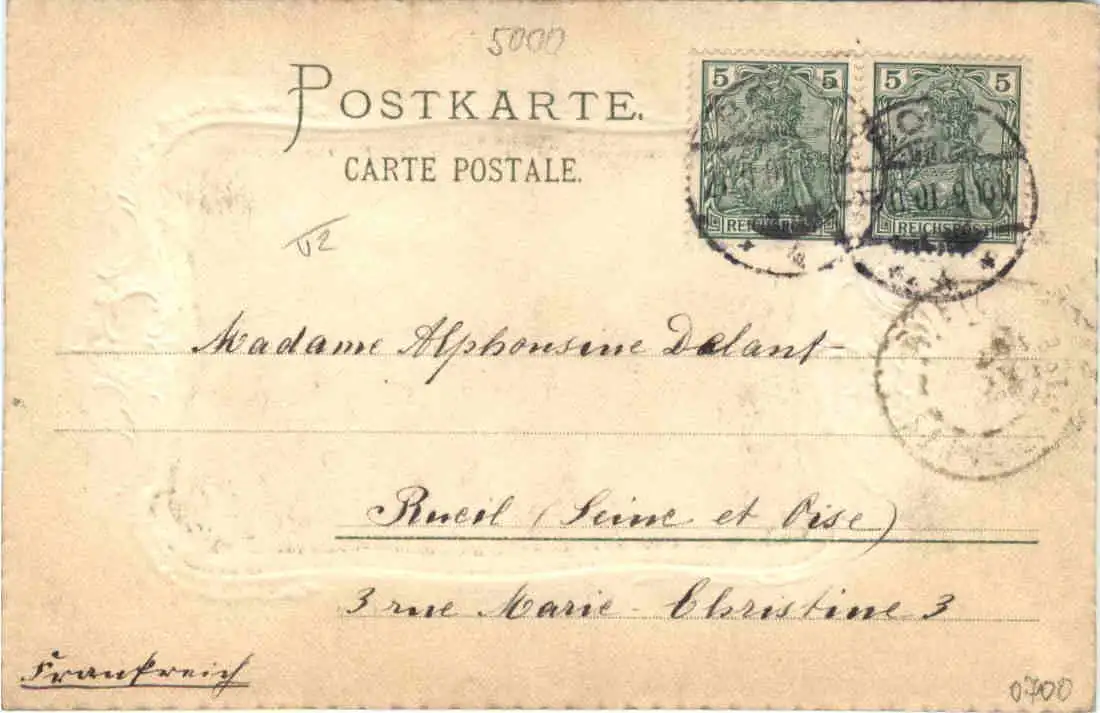 5000
POSTKARTE.
CARTE POSTALE.
5 5 5 5
REICHSPOST REICHSPOST
Madame Alphonsine Delant
Rueil (Seine et Oise)
3 rue Marie-Christine 3
Frankreich
0700